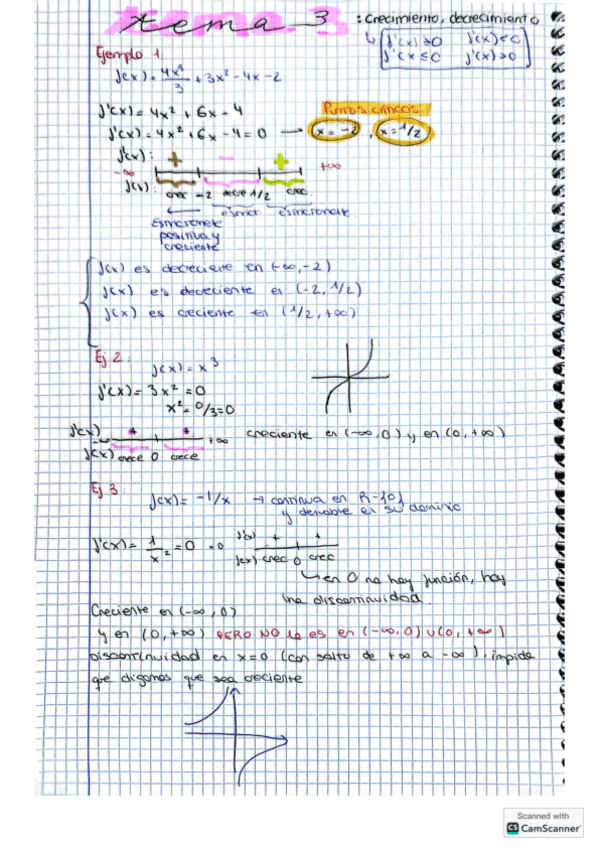 tema 3 : crecimiento, decrecimiento
f'(x) >0 f'(x)<0
f'(x ≤0 f'(x)>0
Ejemplo 1.
f(x)= 4x³/3 + 3x² - 4x - 2
f'(x) = 4x² + 6x - 4
Puntos críticos
f'(x) = 4x² + 6x - 4 = 0 → x = -2 , x = 1/2
f'(x): + - +
-∞ +∞
f(x): crec -2 decre 1/2 crec.
positiva y
creciente
f(x) es decreciere en (-∞, -2)
f(x) es dececiente en (-2, 1/2)
f(x) es creciente en (1/2, +∞)
Ej 2:
f(x) = x³
f'(x) = 3x² = 0
x² = 0/3 = 0
f'(x) + +
-∞ +∞ creciente en (-∞, 0) y en (0, +∞)
f(x) crece 0 crece
Ej 3:
f(x) = -1/x → continua en R-{0}
y derivable en su dominio
f'(x) = 1/x² = 0
f'(x) + +
f(x) crec 0 crec
en 0 no hay función, hay
una discontinuidad.
Creciente en (-∞, 0)
y en (0, +∞) PERO NO lo es en (-∞, 0) U (0, +∞)
Discontinuidad en x=0 (con salto de +∞ a -∞), impide
que digamos que sea creciente
Scanned with
CS CamScanner